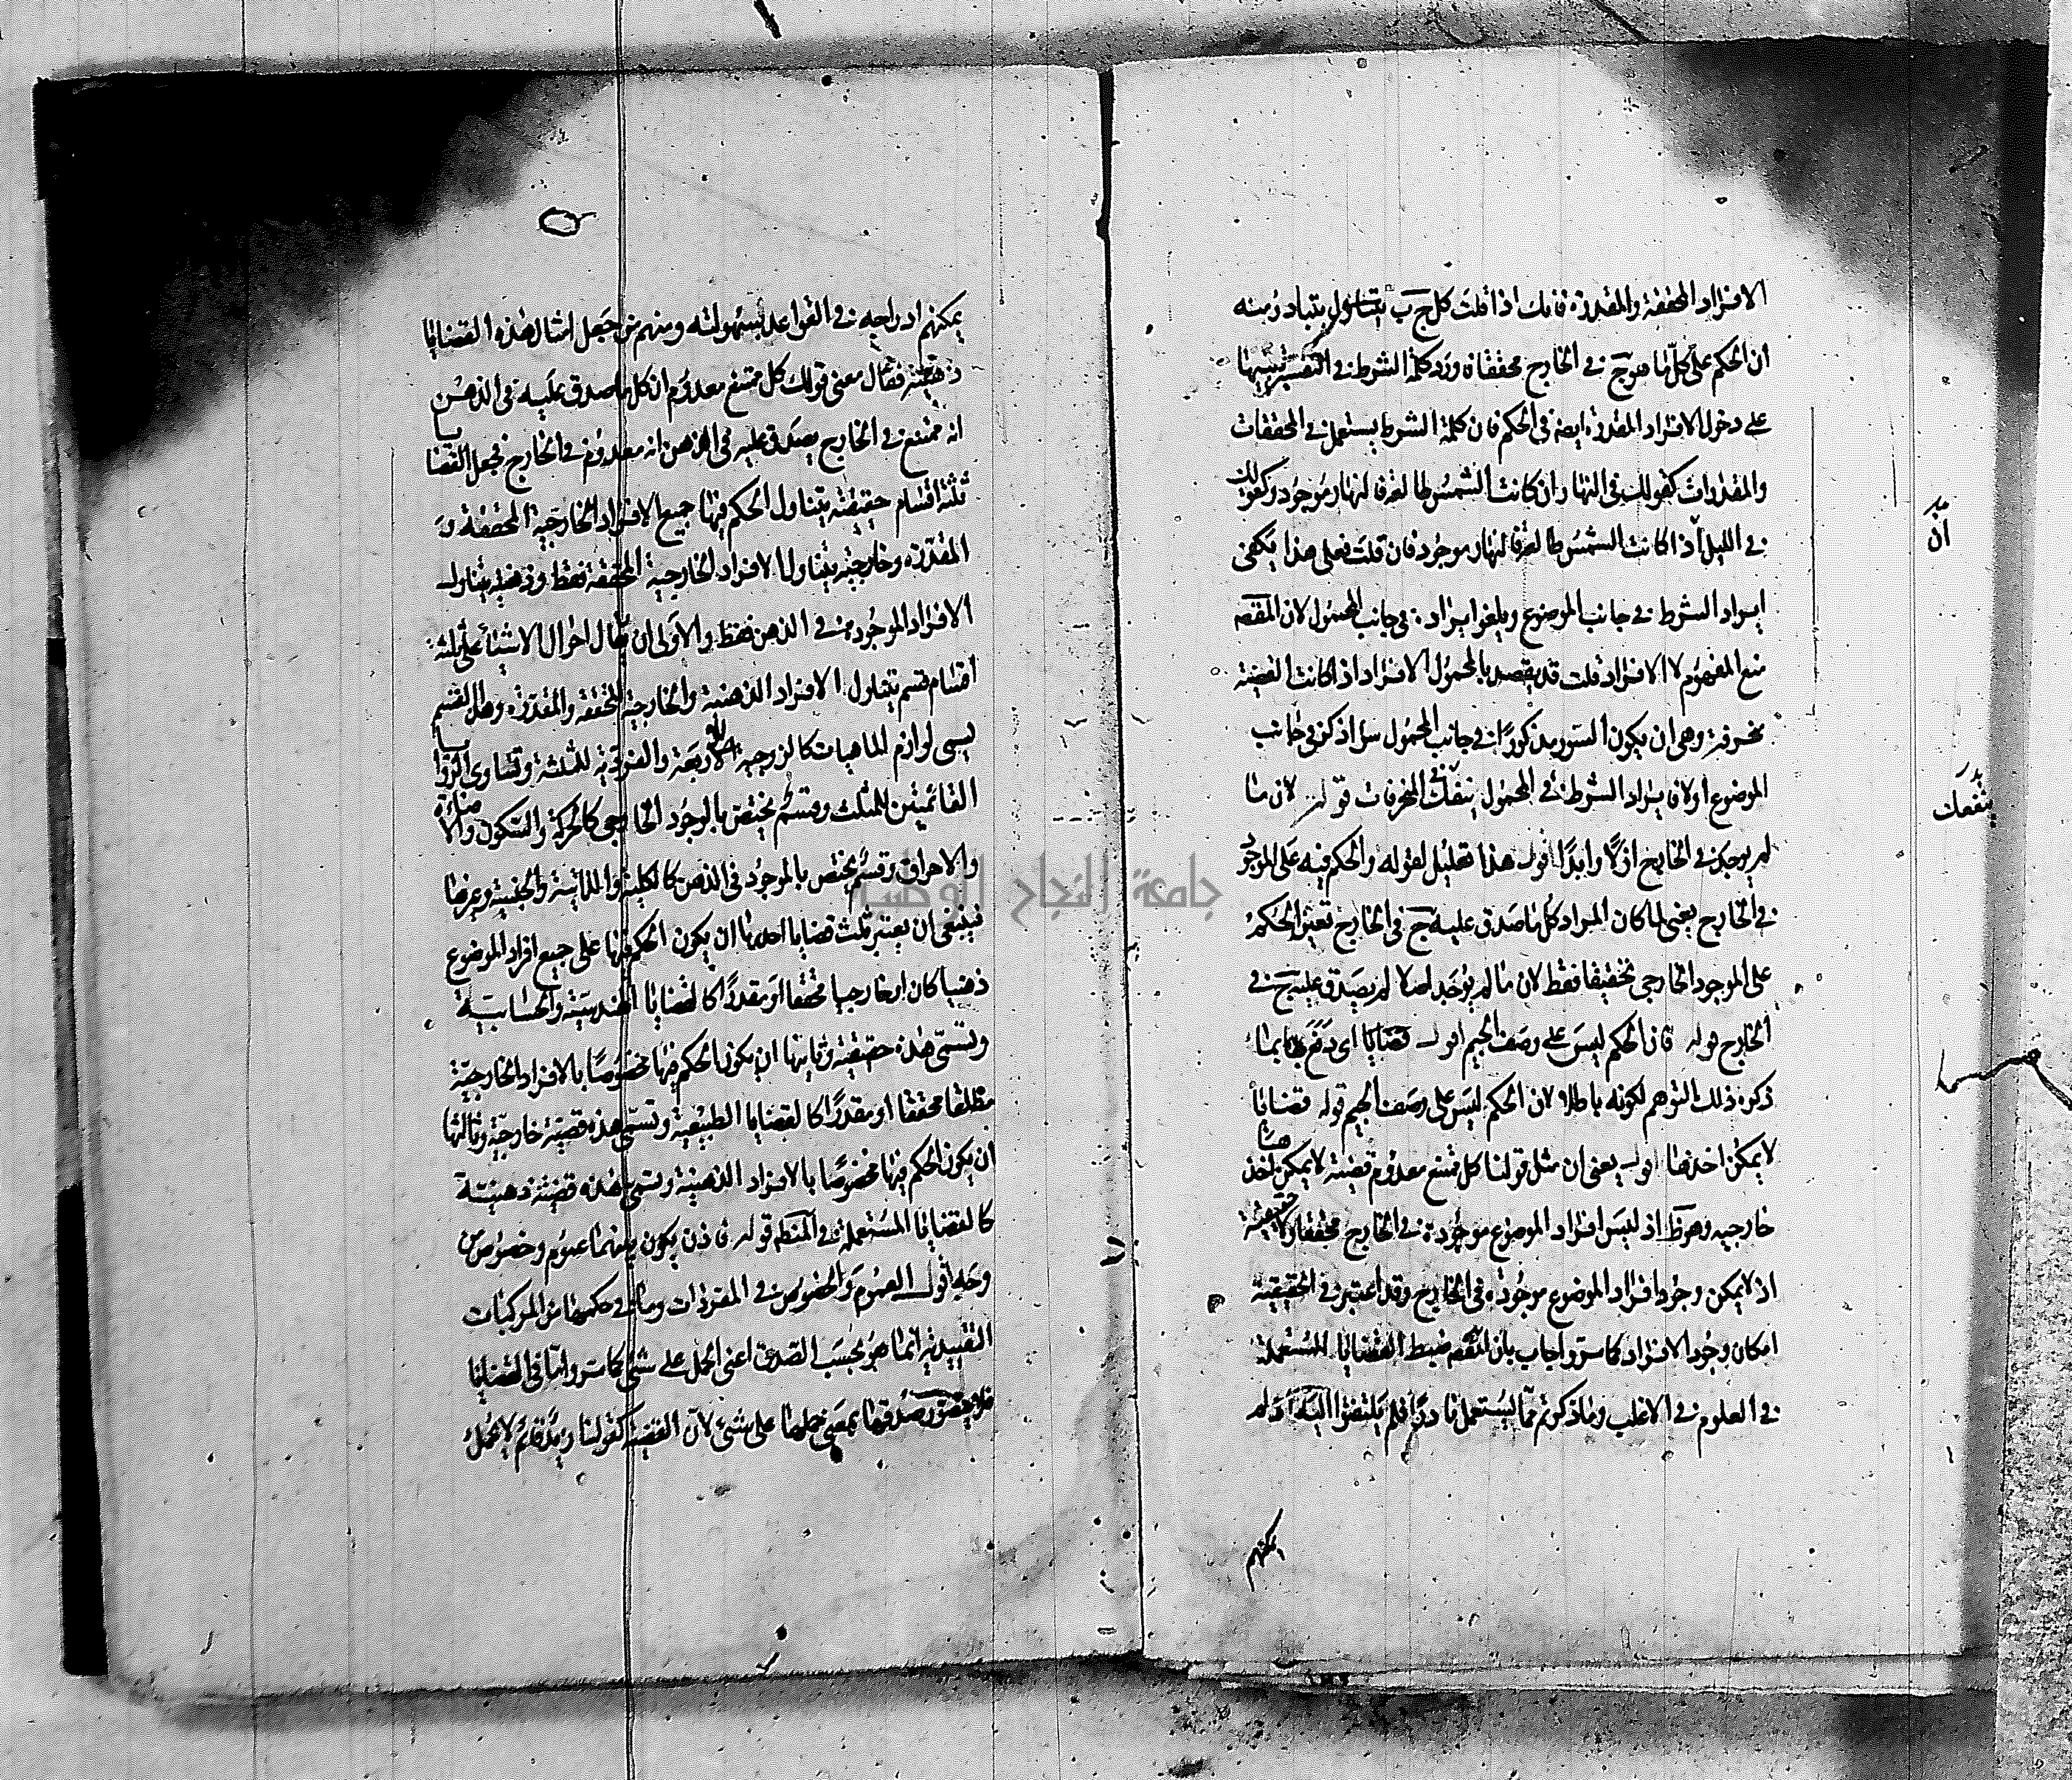 الافراد المحققة والمقدرة فانك اذا قلت كل ج ب يتناول يتبادر منه
ان الحكم على كل ما هو ج في الخارج محققا ورد كلمة الشرط في التفسير تنبيها
على دخول الافراد المقدرة ايضا في الحكم فان كلمة الشرط يستعمل في المحققات
والمقدرات كقولك في النهار ان كانت الشمس طالعة فالنهار موجود وكقولك
في الليل اذا كانت الشمس طالعة فالنهار موجود فان قلت فعلى هذا يكفى
ايراد الشرط في جانب الموضوع ويلغو ايراده في جانب المحمول لان
المفهوم لا الافراد قلت قد يقصد بالمحمول الافراد اذا كانت القضية
منحرفة وهي ان يكون السور مذكورا في جانب المحمول سواء ذكر في جانب
الموضوع اولا فايراد الشرط في المحمول ينفعك في المنحرفات قوله لان ما
لم يوجد في الخارج ازلا وابدا اقول هذا تعليل لقوله والحكم فيه على الموجود
في الخارج يعنى لما كان المراد كل ما صدق عليه ج في الخارج تعين الحكم
على الموجود الخارجي تحقيقا فقط لان ما لم يوجد اصلا لم يصدق عليه ج في
الخارج قوله فان الحكم ليس على وصف الجيم اقول اى دفع بما
ذكره ذلك التوهم لكونه باطلا لان الحكم ليس على وصف الجيم قوله قضايا
لا يمكن اخذها اقول يعنى ان مثل قولنا كل ممتنع معدوم قضية لا يمكن اخذها
خارجية وهو ظ اذ ليس افراد الموضوع موجودة في الخارج محققا ولا حقيقية
اذ لا يمكن وجود افراد الموضوع موجودة في الخارج وقد اعتبر في الحقيقية
امكان وجود الافراد كما مر واجاب بان المقصود ضبط القضايا المستعملة
في العلوم في الاغلب وما ذكرتم مما يستعمل نادرا فلم يلتفتوا اليه اذ لم
يمكنهم
ان
ينفعك
يمكنهم ادراجه في القواعد بسهولته ومنهم من جعل امثال هذه القضايا
ذهنية فقال معنى قولك كل ممتنع معدوم ان كل ما صدق عليه في الذهن
انه ممتنع في الخارج يصدق عليه في الذهن انه معدوم في الخارج فجعل القضايا
ثلثة اقسام حقيقية يتناول الحكم فيها جميع الافراد الخارجية المحققة و
المقدرة وخارجية يتناول الافراد الخارجية المحققة فقط وذهنية يتناول
الافراد الموجودة في الذهن فقط والاولى ان يقال احوال الاشياء على ثلثة
اقسام قسم يتناول الافراد الذهنية والخارجية المحققة والمقدرة وهذا القسم
يسمى لوازم الماهيات كالزوجية للاربعة والفردية للثلثة وتساوى الزوايا
القائمتين للمثلث وقسم يختص بالوجود الخارجي كالحركة والسكون والاضاءة
والاحراق وقسم يختص بالموجود في الذهن كالكلية والذاتية والجنسية وغيرها
فينبغى ان يعتبر ثلث قضايا احدها ان يكون الحكم فيها على جميع افراد الموضوع
ذهنيا كان او خارجيا محققا او مقدرا كالقضايا الهندسية والحسابية
وتسمى هذه حقيقية وثانيها ان يكون الحكم فيها مخصوصا بالافراد الخارجية
مطلقا محققا او مقدرا كالقضايا الطبيعية وتسمى هذه قضية خارجية وثالثها
ان يكون الحكم فيها مخصوصا بالافراد الذهنية وتسمى هذه قضية ذهنية
كالقضايا المستعملة في المنطق قوله فاذن يكون بينهما عموم وخصوص من
وجه اقول العموم والخصوص في المفردات وما في حكمها من المركبات
التقييدية انما هو بحسب الصدق اعنى الحمل على شئ كما مر واما في القضايا
فلا يتصور صدقها بمعنى حملها على شئ لان القضية كقولنا زيد قائم لا يحمل
جامعة النجاح الوطنية